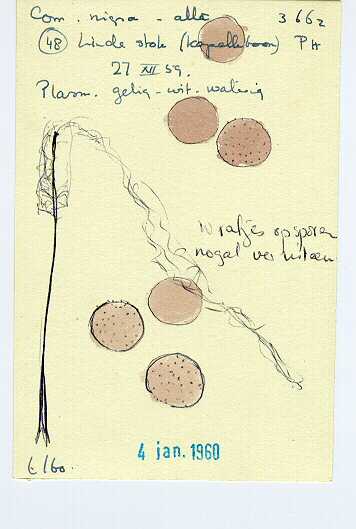 Com. nigra - alta 3662
48 Linde stok (Kapelleboom) PH
27 XII 59.
Plasm. gelig-wit. waterig
wratjes op sporen
nogal
t/60.
4 jan. 1960